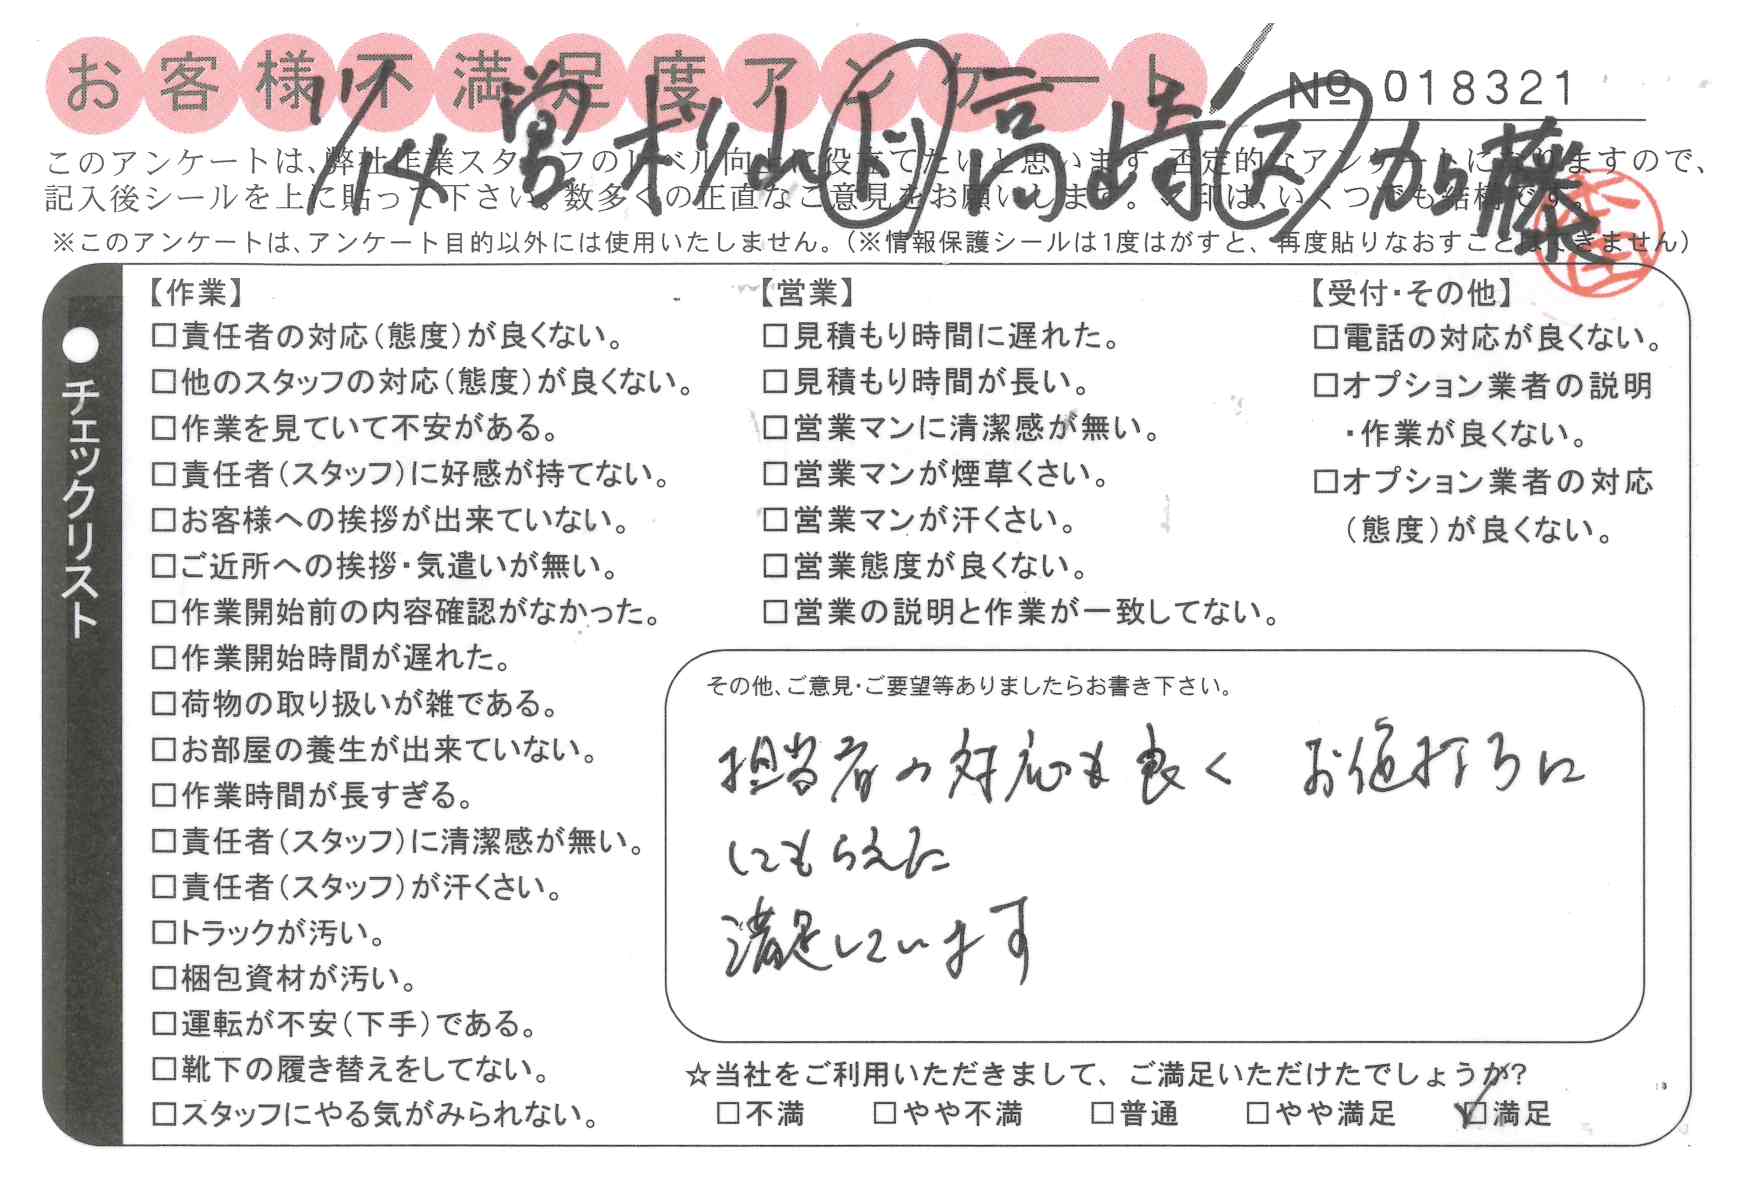 お客様不満足度アンケート
№ 018321
営 松山 高崎 加藤
このアンケートは、弊社作業スタッフのレベル向上に役立てたいと思います。否定的なアンケートになりますので、
記入後シールを上に貼って下さい。数多くの正直なご意見をお願いします。✓印は、いくつでも結構です。
※このアンケートは、アンケート目的以外には使用いたしません。(※情報保護シールは1度はがすと、再度貼りなおすことはできません)
●チェックリスト
【作業】
□責任者の対応(態度)が良くない。
□他のスタッフの対応(態度)が良くない。
□作業を見ていて不安がある。
□責任者(スタッフ)に好感が持てない。
□お客様への挨拶が出来ていない。
□ご近所への挨拶・気遣いが無い。
□作業開始前の内容確認がなかった。
□作業開始時間が遅れた。
□荷物の取り扱いが雑である。
□お部屋の養生が出来ていない。
□作業時間が長すぎる。
□責任者(スタッフ)に清潔感が無い。
□責任者(スタッフ)が汗くさい。
□トラックが汚い。
□梱包資材が汚い。
□運転が不安(下手)である。
□靴下の履き替えをしてない。
□スタッフにやる気がみられない。
【営業】
□見積もり時間に遅れた。
□見積もり時間が長い。
□営業マンに清潔感が無い。
□営業マンが煙草くさい。
□営業マンが汗くさい。
□営業態度が良くない。
□営業の説明と作業が一致してない。
【受付・その他】
□電話の対応が良くない。
□オプション業者の説明
・作業が良くない。
□オプション業者の対応
(態度)が良くない。
その他、ご意見・ご要望等ありましたらお書き下さい。
担当者の対応も良く お値打ちに
してもらえた
満足しています
☆当社をご利用いただきまして、ご満足いただけたでしょうか?
□不満 □やや不満 □普通 □やや満足 ☑満足